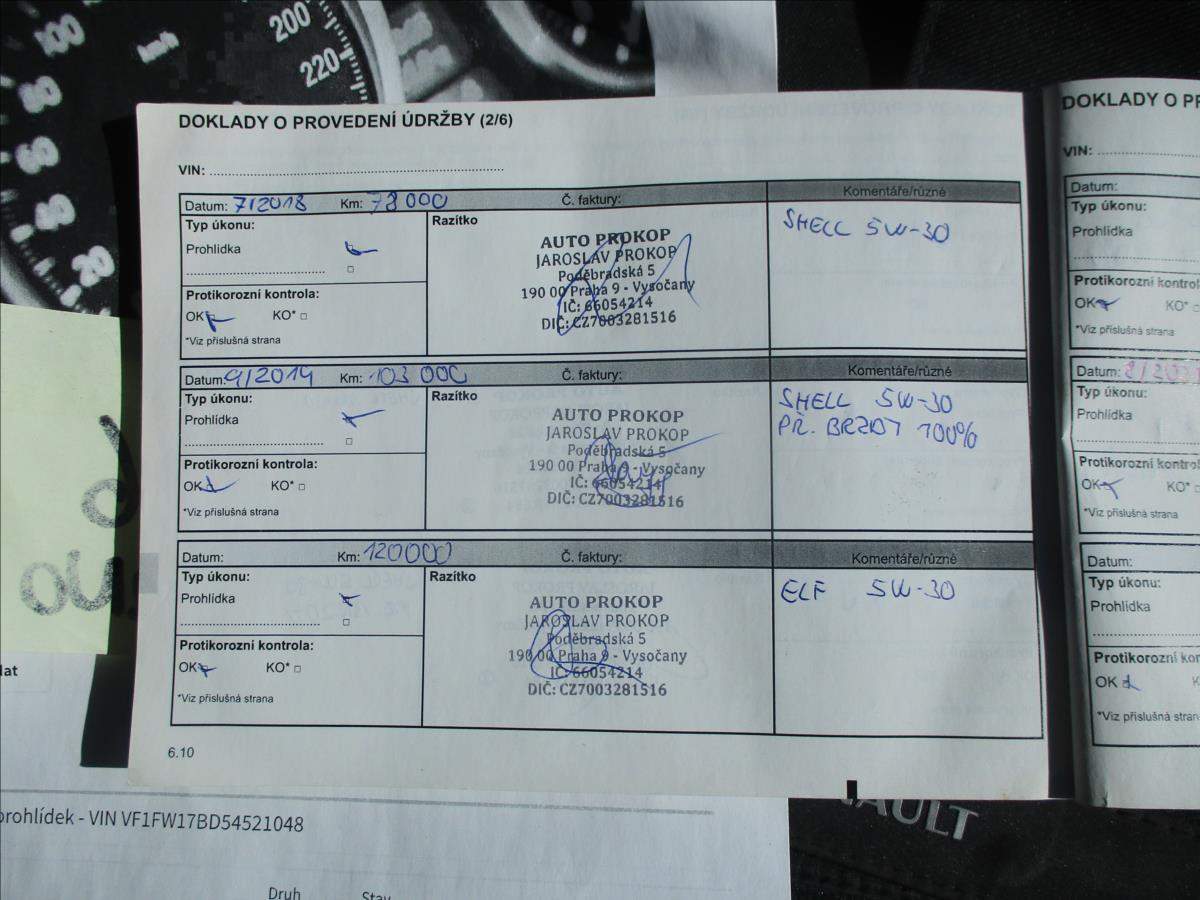 100
80
60
40
20
200
220
DOKLADY O PROVEDENÍ ÚDRŽBY (2/6)
VIN:
Datum: 7/2018 Km: 78 000 Č. faktury: Komentáře/různé
Typ úkonu:
Prohlídka
Protikorozní kontrola:
OK KO*
*Viz příslušná strana
Razítko
AUTO PROKOP
JAROSLAV PROKOP
Poděbradská 5
190 00 Praha 9 - Vysočany
IČ: 66054214
DIČ: CZ7003281516
SHELL 5W-30
Datum: 9/2019 Km: 103 000 Č. faktury: Komentáře/různé
Typ úkonu:
Prohlídka
Protikorozní kontrola:
OK KO*
*Viz příslušná strana
Razítko
AUTO PROKOP
JAROSLAV PROKOP
Poděbradská 5
190 00 Praha 9 - Vysočany
IČ: 66054214
DIČ: CZ7003281516
SHELL 5W-30
PŘ. BRZDY 100%
Datum: Km: 120000 Č. faktury: Komentáře/různé
Typ úkonu:
Prohlídka
Protikorozní kontrola:
OK KO*
*Viz příslušná strana
Razítko
AUTO PROKOP
JAROSLAV PROKOP
Poděbradská 5
190 00 Praha 9 - Vysočany
IČ: 66054214
DIČ: CZ7003281516
ELF 5W-30
6.10
DOKLADY O PR
VIN:
Datum:
Typ úkonu:
Prohlídka
Protikorozní kontrol
OK KO*
*Viz příslušná strana
Datum:
Typ úkonu:
Prohlídka
Protikorozní kontro
OK KO*
*Viz příslušná strana
Datum:
Typ úkonu:
Prohlídka
Protikorozní kon
OK
*Viz příslušná stran
lat
prohlídek - VIN VF1FW17BD54521048
Druh Stav
NAULT